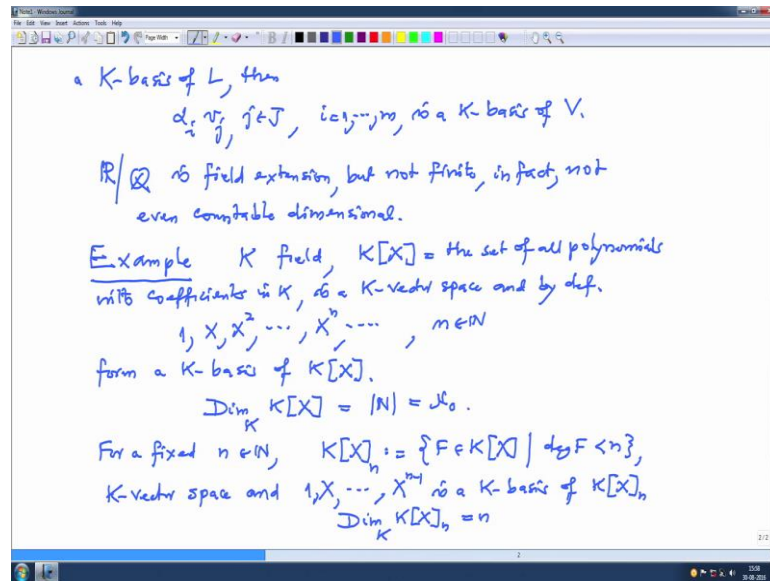 Note1 - Windows Journal
File Edit View Insert Actions Tools Help
Page Width
a K-basis of L, then
α_i v_j, j∈J, i=1,…,m, is a K-basis of V.
ℝ/ℚ is field extension, but not finite, in fact, not
even countable dimensional.
Example K field, K[X] = the set of all polynomials
with coefficients in K, is a K-vector space and by def.
1, X, X², …, Xⁿ, …, n∈ℕ
form a K-basis of K[X].
Dim_K K[X] = |ℕ| = ℵ₀.
For a fixed n∈ℕ, K[X]_n := {F∈K[X] | deg F < n},
K-vector space and 1, X, …, Xⁿ⁻¹ is a K-basis of K[X]_n
Dim_K K[X]_n = n
2/2
2
15:58
30-08-2016